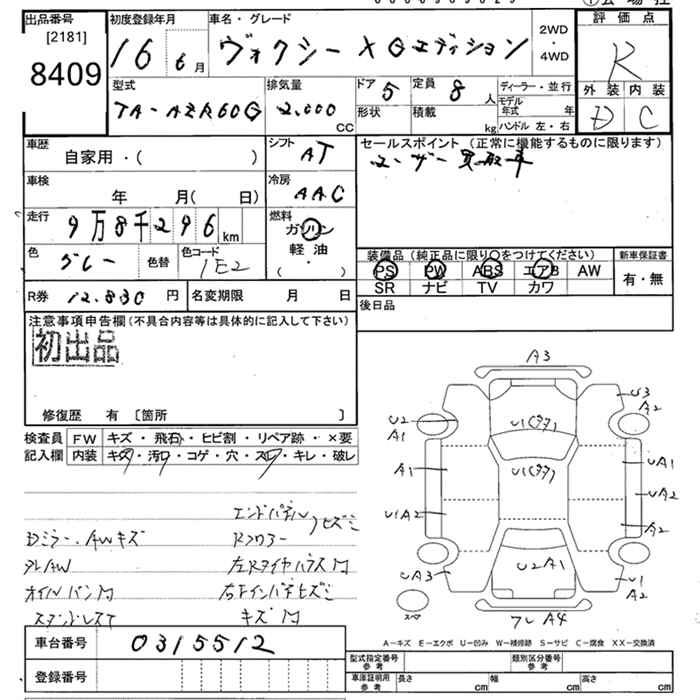 出品番号
[2181]
8409
初度登録年月
16 6 月
車名・グレード
ヴォクシー X Gエディション
2WD
・
4WD
評価点
R
外装 内装
D C
型式
TA-AZR60G
排気量
2,000
CC
ドア 5
形状
定員 8 人
積載 kg
ディーラー・並行
モデル年式 年
ハンドル 左・右
車歴
自家用・( )
シフト
AT
セールスポイント (正常に機能するものに限ります)
ユーザー買取車
車検
年 月( 日)
冷房
AAC
走行
9万8千296 km
燃料
ガソリン
軽油
( ・ )
色
グレー
色替
色コード
1E2
装備品 (純正品に限り○をつけてください)
PS PW ABS エアB AW
SR ナビ TV カワ
新車保証書
有・無
R券 12.830 円
名変期限 月 日
後日品
注意事項申告欄(不具合内容等は具体的に記入して下さい)
初出品
修復歴 有 〔箇所 〕
検査員記入欄
FW キズ・飛石・ヒビ割・リペア跡・×要
内装 キズ・汚レ・コゲ・穴・スレ・キレ・破レ
エンドパネルヒズミ
Dミラー・AWキズ
Rフロアー
左RタイヤハウスM
オイルパンM
キズM
A3
U3
A2
U2
A1
A1
UA1
U1A2
UA2
A2
UA3
U2A1
U1
A2
スペア
A4
A-キズ E-エクボ U-凹み W-補修跡 S-サビ C-腐食 XX-交換済
車台番号
0315512
登録番号
型式指定番号
参考
類別区分番号
参考
車庫証明用
参考
長さ cm
幅 cm
高さ cm